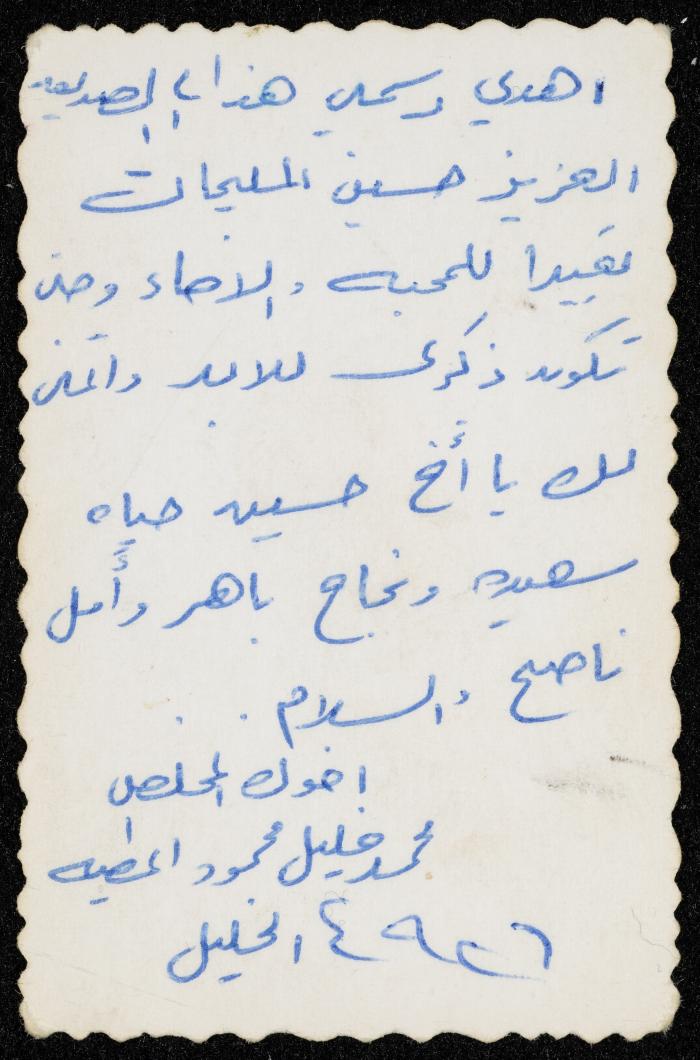 اهدي رسمي هذا الى الصديق
العزيز حسين المليحات
تقيدا للمحبه والاخاء وحتى
تكون ذكرى للابد واتمنى
لك يا أخ حسين حياه
سعيده ونجاح باهر وأمل
ناصح والسلام . .
اخوك المخلص
محمد خليل محمود
الخليل